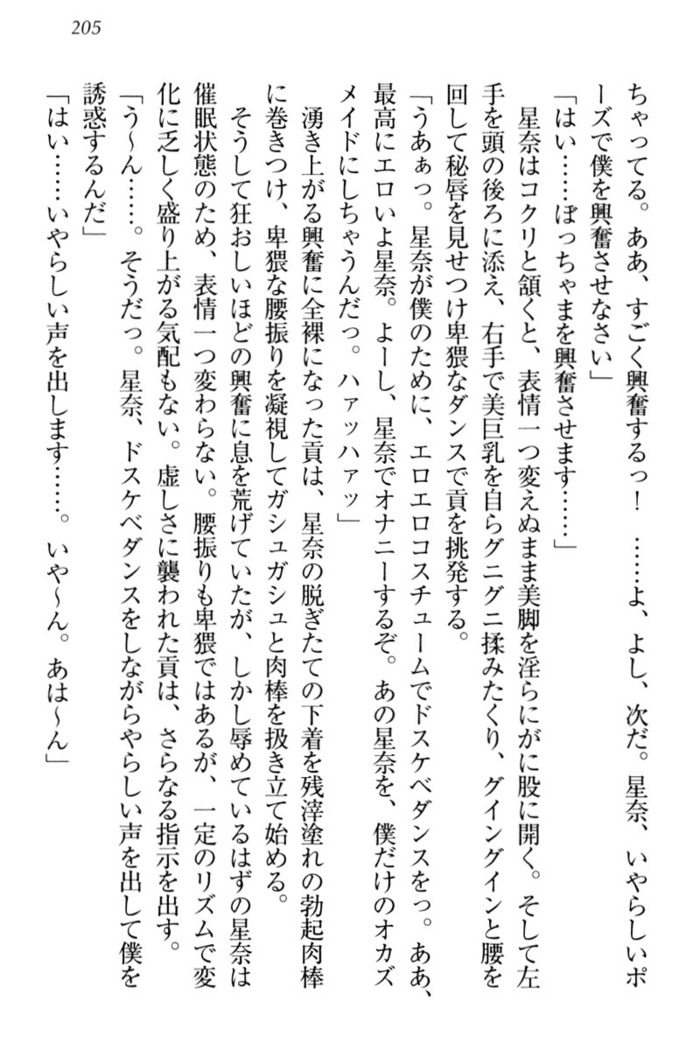 205
ちゃってる。ああ、すごく興奮するっ！　……よ、よし、次だ。星奈、いやらしいポ
ーズで僕を興奮させなさい」
「はい……ぼっちゃまを興奮させます……」
　星奈はコクリと頷くと、表情一つ変えぬまま美脚を淫らにがに股に開く。そして左
手を頭の後ろに添え、右手で美巨乳を自らグニグニ揉みたくり、グイングインと腰を
回して秘唇を見せつけ卑猥なダンスで貢を挑発する。
「うあぁっ。星奈が僕のために、エロエロコスチュームでドスケベダンスをっ。ああ、
最高にエロいよ星奈。よーし、星奈でオナニーするぞ。あの星奈を、僕だけのオカズ
メイドにしちゃうんだっ。ハァッハァッ」
　湧き上がる興奮に全裸になった貢は、星奈の脱ぎたての下着を残滓塗れの勃起肉棒
に巻きつけ、卑猥な腰振りを凝視してガシュガシュと肉棒を扱き立て始める。
　そうして狂おしいほどの興奮に息を荒げていたが、しかし辱めているはずの星奈は
催眠状態のため、表情一つ変わらない。腰振りも卑猥ではあるが、一定のリズムで変
化に乏しく盛り上がる気配もない。虚しさに襲われた貢は、さらなる指示を出す。
「う～ん……。そうだっ。星奈、ドスケベダンスをしながらやらしい声を出して僕を
誘惑するんだ」
「はい……いやらしい声を出します……。いや～ん。あは～ん」